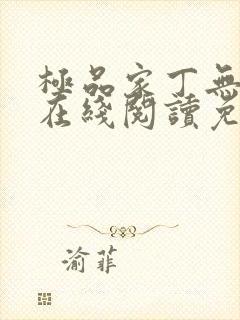 極品家丁無
在綫閱讀免
渝菲